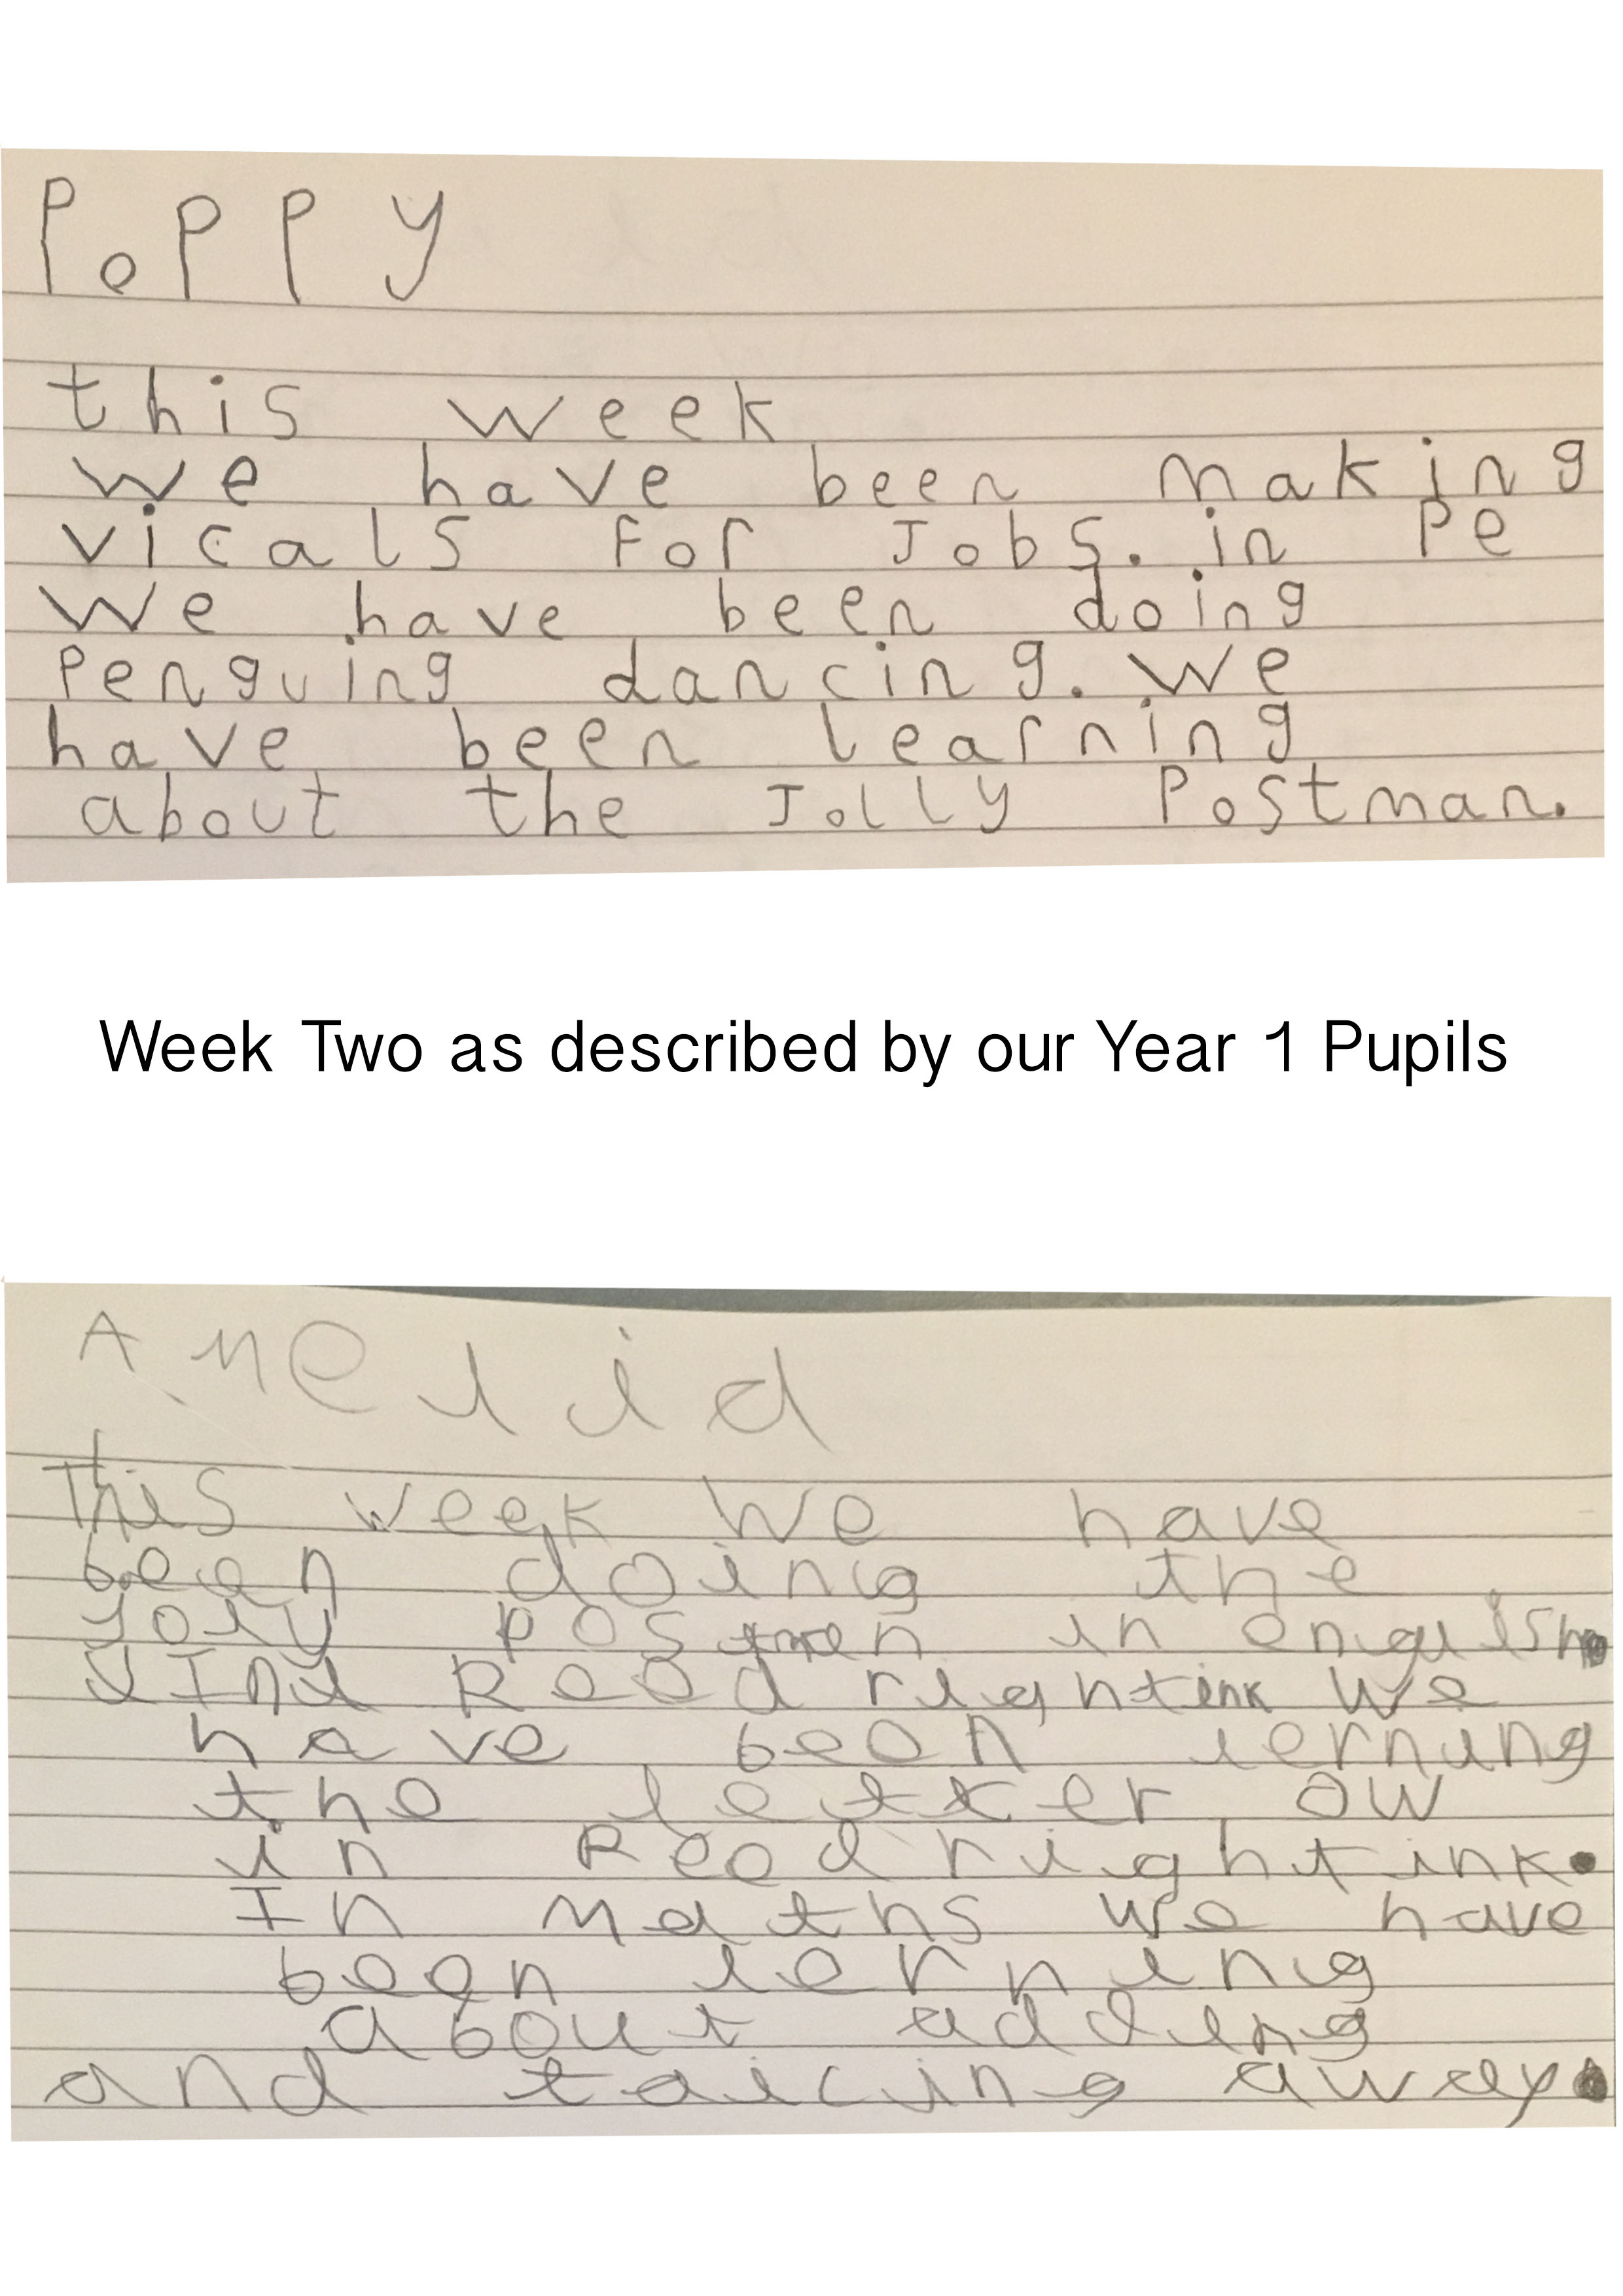 Poppy
this week
we have been making
vicals for Jobs. in Pe
We have been doing
Penguing dancing. We
have been learning
about the Jolly Postman.
Week Two as described by our Year 1 Pupils
Amelia
This week We have
been doing the
joly posmen in english.
Read rightink We
have been lerning
the letter ow
in Read rightink.
In Maths We have
been lerning
about adding
and taicing away.